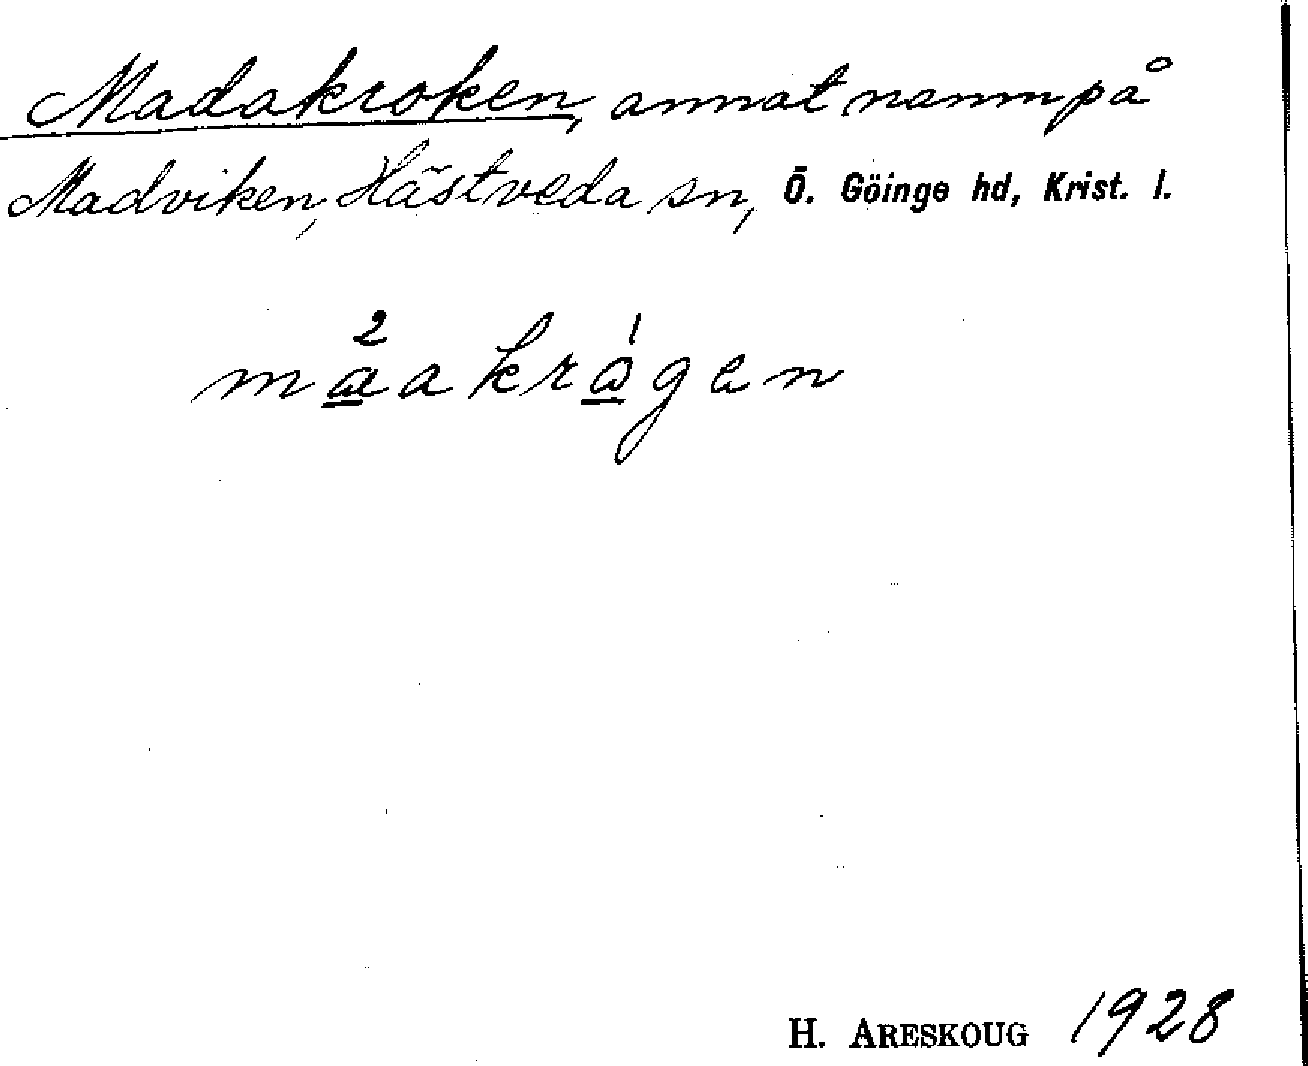 Madakroken, annat namn på
Madviken, Hästveda sn, Ö. Göinge hd, Krist. l.
2 1
maakrågen
H. ARESKOUG 1928